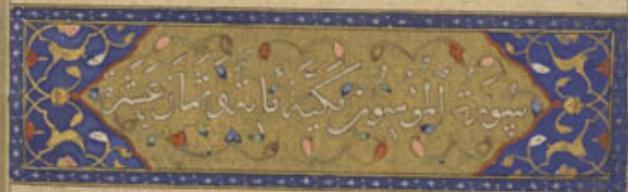 سورة المؤمنون مكية مائة وثمان عشرة